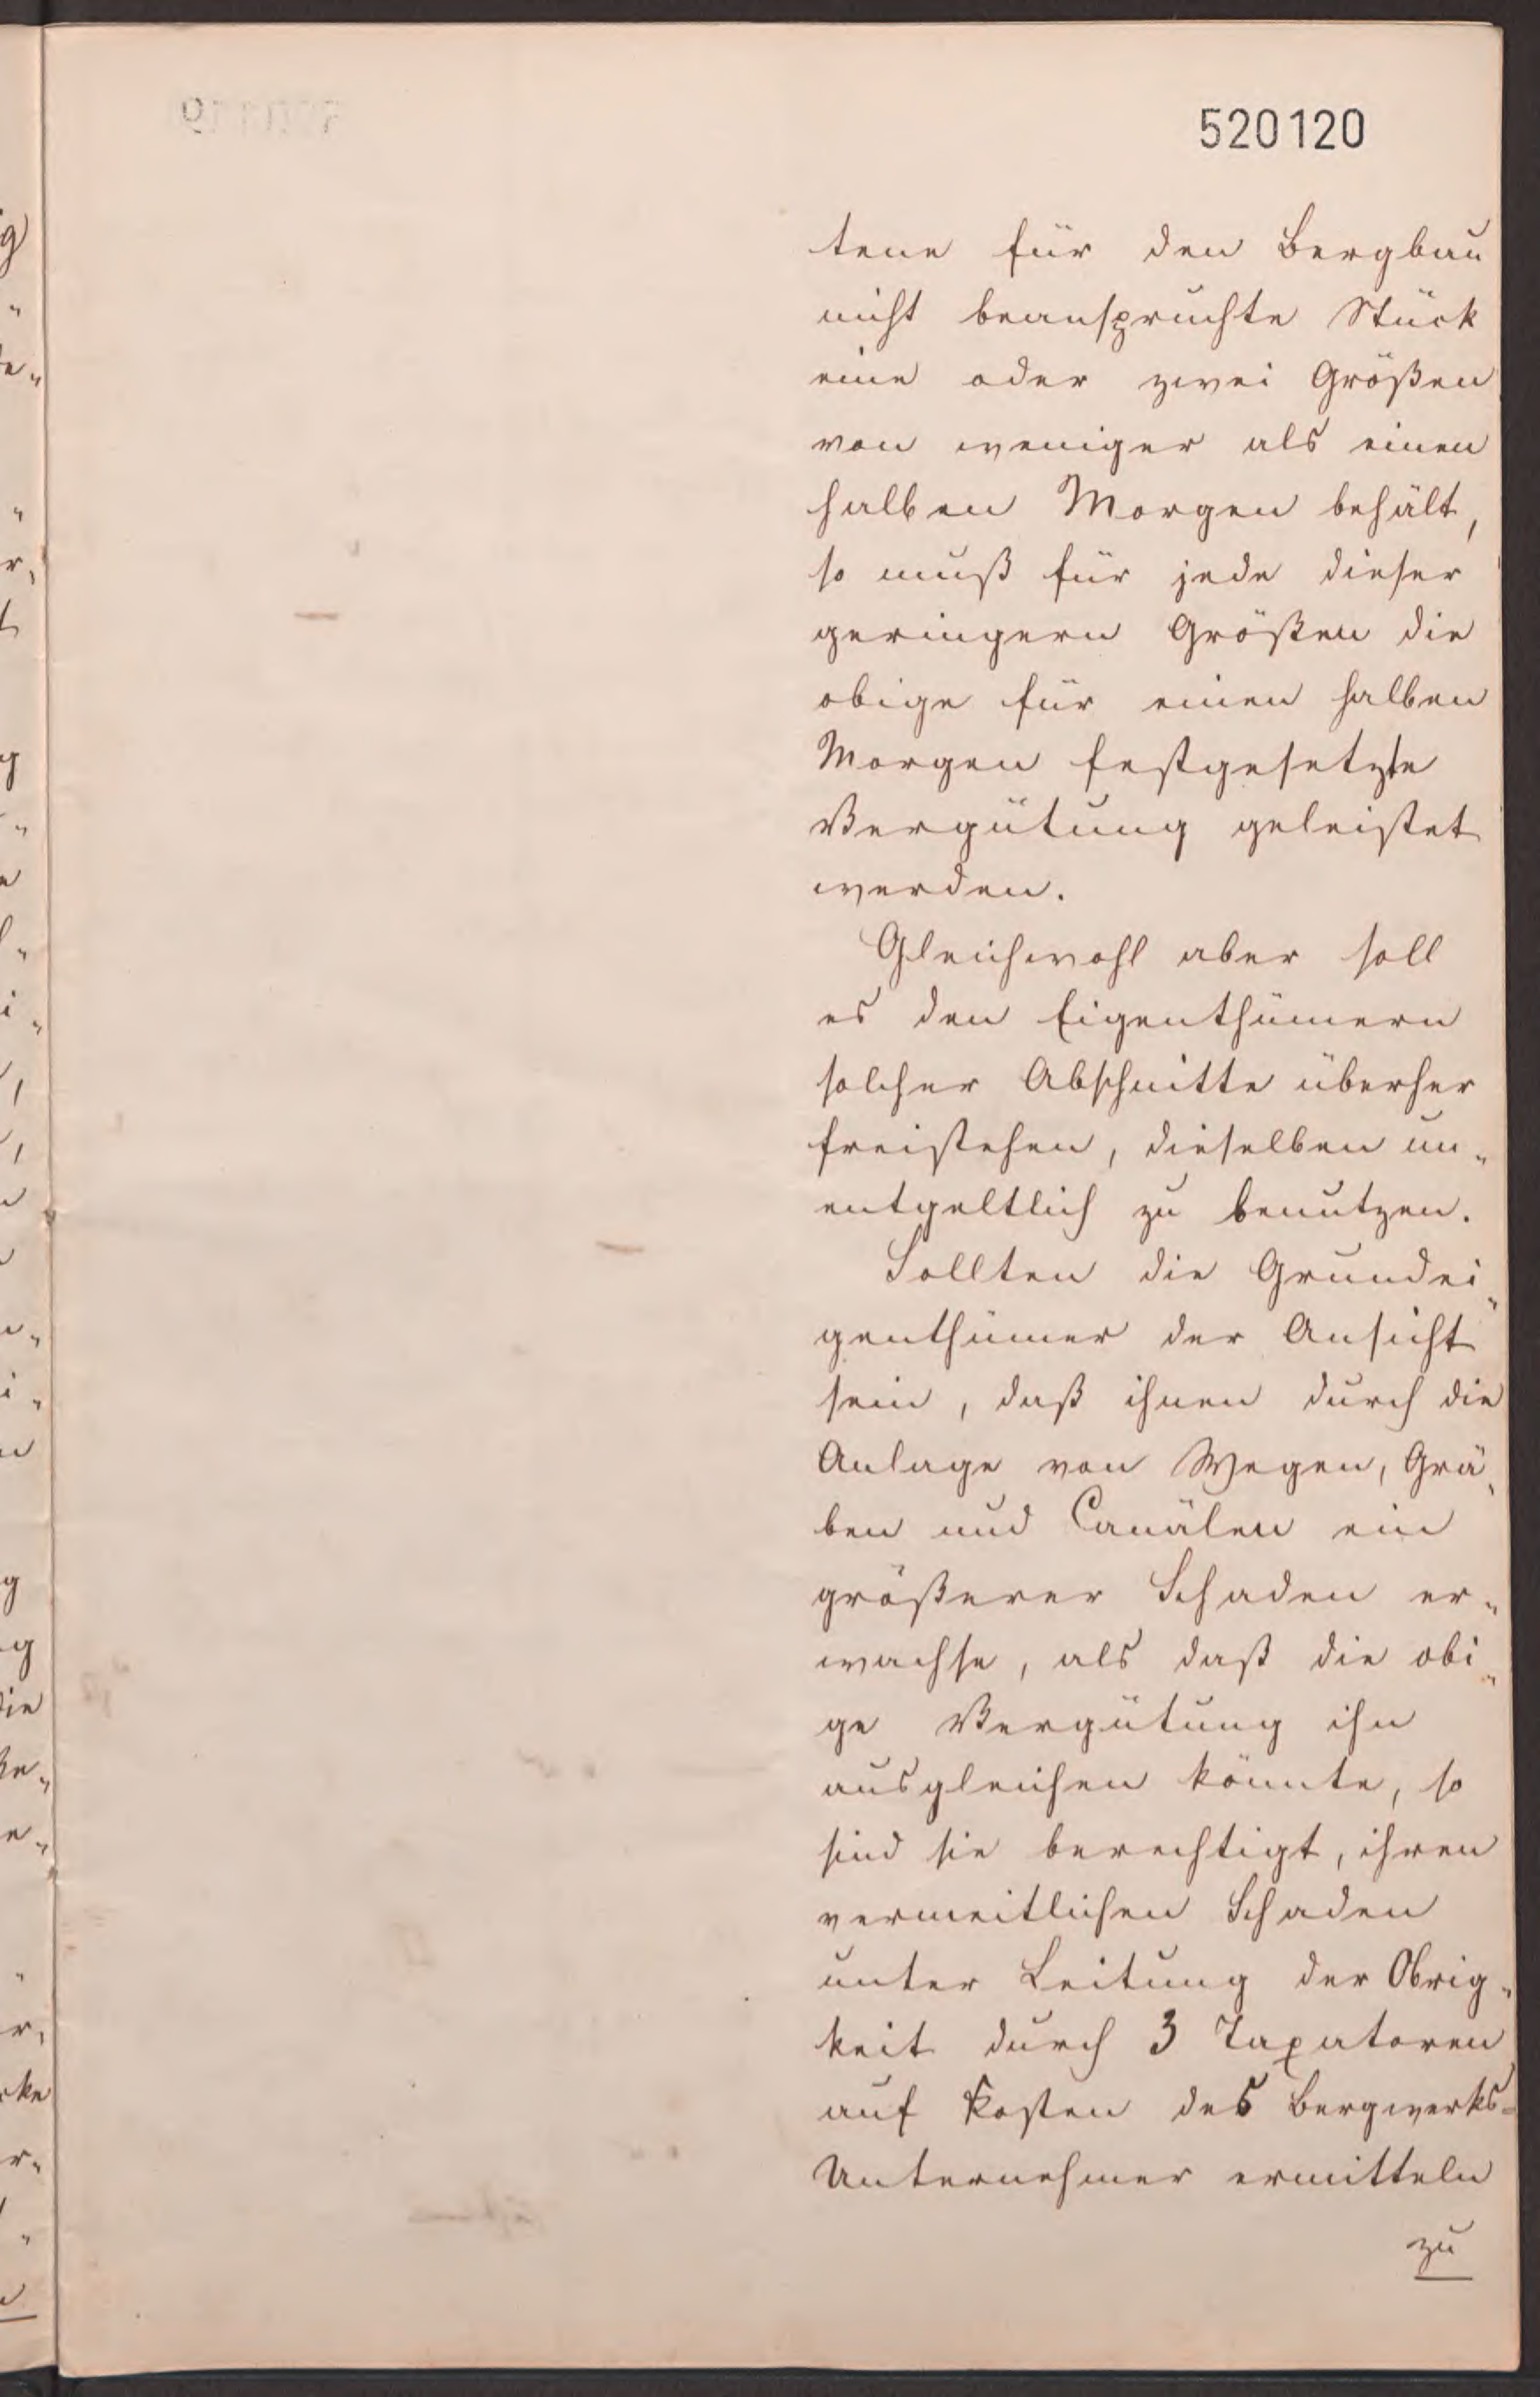 520120
tene für den Bergbau
nicht beanspruchte Stück
eine oder zwei Größen
von weniger als einen
halben Morgen behält,
so muß für jede dieser
geringern Größen die
obige für einen halben
Morgen festgesetzte
Vergütung geleistet
werden.
Gleichwohl aber soll
es den Eigenthümern
solcher Abschnitte überher
freistehen, dieselben un-
entgeltlich zu benutzen.
Sollten die Grundei-
genthümer der Ansicht
sein, daß ihnen durch die
Anlage von Wegen, Grä-
ben und Canälen ein
größerer Schaden er-
wachse, als daß die obi-
ge Vergütung ihn
ausgleichen könnte, so
sind sie berechtigt, ihren
vermeitlichen Schaden
unter Leitung der Obrig-
keit durch 3 Taxatoren
auf Kosten des Bergwerks-
Unternehmer ermitteln
zu